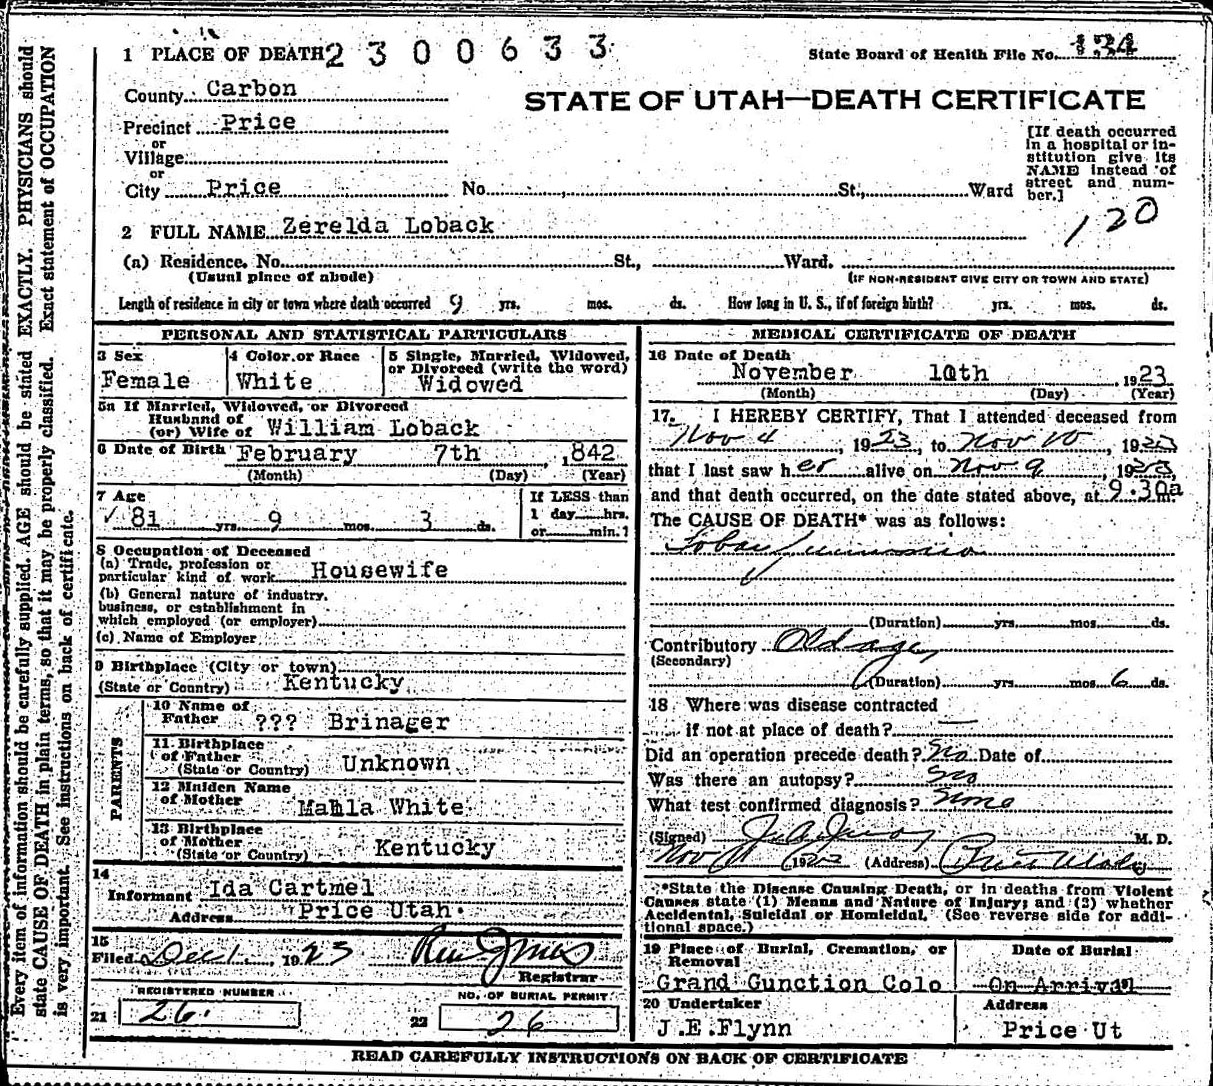 1 PLACE OF DEATH 2300633
State Board of Health File No. 134
County Carbon
STATE OF UTAH—DEATH CERTIFICATE
Precinct Price
or
Village
or
City Price No. , St., Ward
[If death occurred
in a hospital or in-
stitution give its
NAME instead of
street and num-
ber.]
120
2 FULL NAME Zerelda Loback
(a) Residence. No. St., Ward.
(Usual place of abode) (IF NON-RESIDENT GIVE CITY OR TOWN AND STATE)
Length of residence in city or town where death occurred 9 yrs. mos. ds. How long in U. S., if of foreign birth? yrs. mos. ds.
PERSONAL AND STATISTICAL PARTICULARS
3 Sex
Female
4 Color or Race
White
5 Single, Married, Widowed,
or Divorced (write the word)
Widowed
5a If Married, Widowed, or Divorced
Husband of
(or) Wife of William Loback
6 Date of Birth February 7th , 1842
(Month) (Day) (Year)
7 Age
81 yrs. 9 mos. 3 ds.
If LESS than
1 day hrs.
or min.?
8 Occupation of Deceased
(a) Trade, profession or
particular kind of work Housewife
(b) General nature of industry,
business, or establishment in
which employed (or employer)
(c) Name of Employer
9 Birthplace (City or town)
(State or Country) Kentucky
PARENTS
10 Name of
Father ??? Brinager
11 Birthplace
of Father
(State or Country) Unknown
12 Maiden Name
of Mother Mahla White
13 Birthplace
of Mother
(State or Country) Kentucky
14
Informant Ida Cartmel
Address Price Utah.
15
Filed Dec 1. , 1923
Registrar
REGISTERED NUMBER
21 26.
NO. OF BURIAL PERMIT
22 26
MEDICAL CERTIFICATE OF DEATH
16 Date of Death
November 10th , 1923
(Month) (Day) (Year)
17. I HEREBY CERTIFY, That I attended deceased from
Nov 4 , 1923, to Nov 10 , 1923
that I last saw her alive on Nov 9 , 1923,
and that death occurred, on the date stated above, at 9.30a m.
The CAUSE OF DEATH* was as follows:
Lobar
(Duration) yrs. mos. ds.
Contributory Old age
(Secondary)
(Duration) yrs. mos. 6 ds.
18 Where was disease contracted
if not at place of death?
Did an operation precede death? No Date of
Was there an autopsy? No
What test confirmed diagnosis?
(Signed) M. D.
Nov 1923 (Address) Price Utah
*State the Disease Causing Death, or in deaths from Violent
Causes state (1) Means and Nature of Injury; and (2) whether
Accidental, Suicidal or Homicidal. (See reverse side for addi-
tional space.)
19 Place of Burial, Cremation, or
Removal
Grand Gunction Colo
Date of Burial
On Arrival 19
20 Undertaker
J.E.Flynn
Address
Price Ut
READ CAREFULLY INSTRUCTIONS ON BACK OF CERTIFICATE
Every item of information should be carefully supplied. AGE should be stated EXACTLY. PHYSICIANS should
state CAUSE OF DEATH in plain terms, so that it may be properly classified. Exact statement of OCCUPATION
is very important. See instructions on back of certificate.